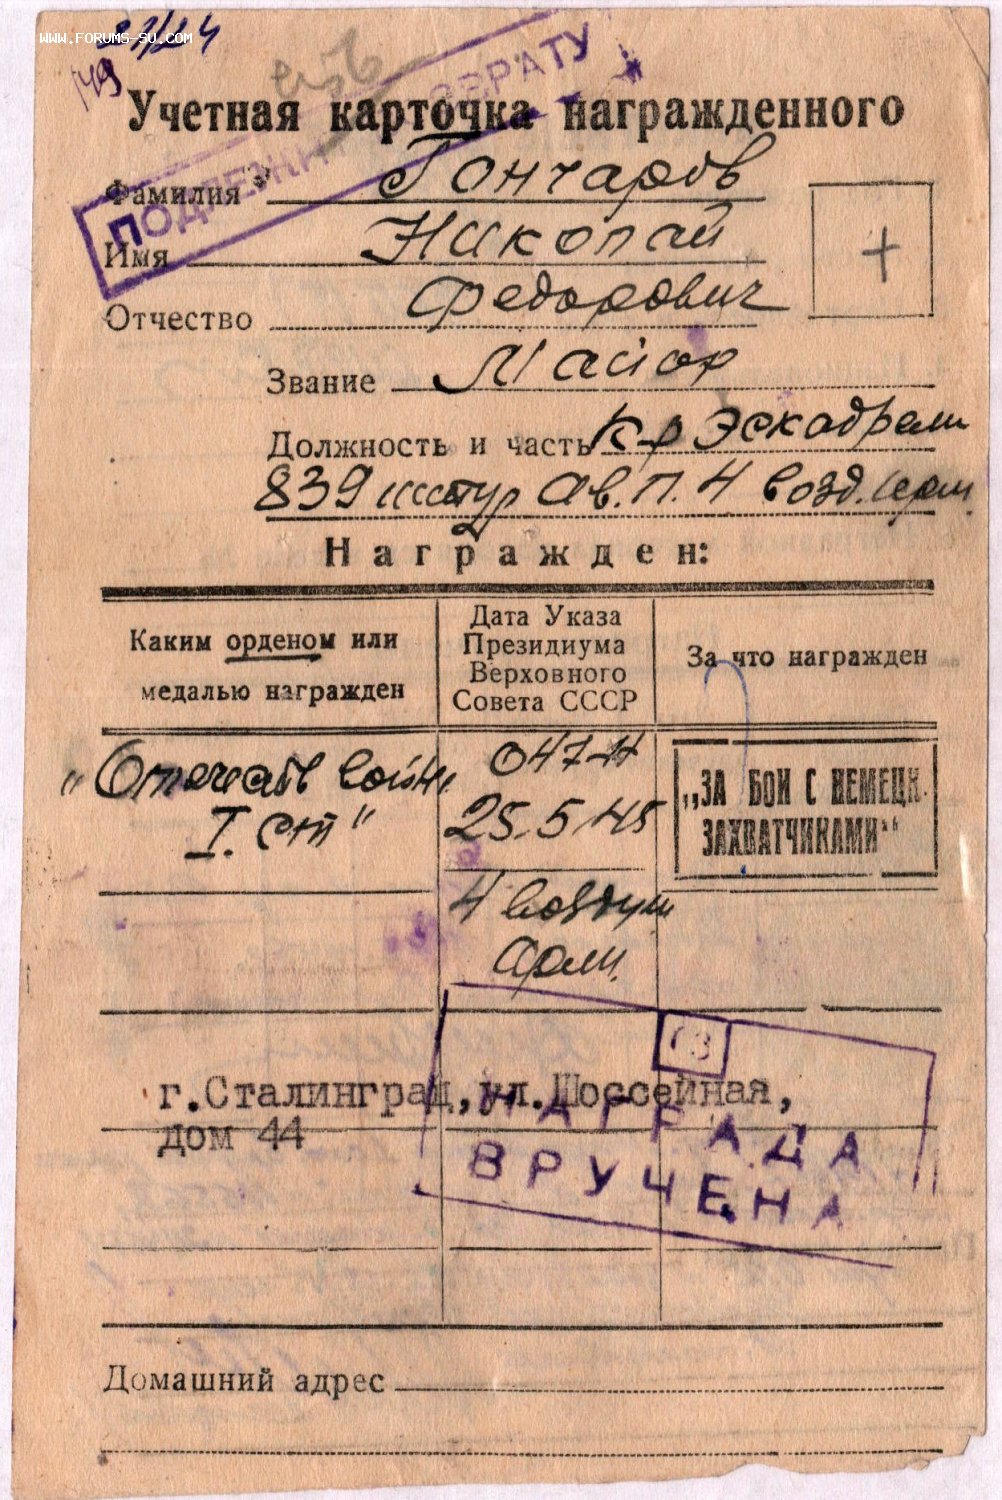 WWW.FORUMS-SU.COM
149
Учетная карточка награжденного
ПОДЛЕЖИТ ВОЗВРАТУ
Фамилия Гончаров
Имя Николай
Отчество Федорович
+
Звание Майор
Должность и часть К-р Эскадрели
839 штур ав.п. 4 возд. арм.
Награжден:
Каким орденом или медалью награжден
Дата Указа Президиума Верховного Совета СССР
За что награжден
"Отечеств войны I. ст"
047-Н
25.5.45
4 воздуш
арм.
"ЗА БОИ С НЕМЕЦК.
ЗАХВАТЧИКАМИ"
г.Сталинград,ул.Шоссейная,
дом 44
НАГРАДА
ВРУЧЕНА
Домашний адрес